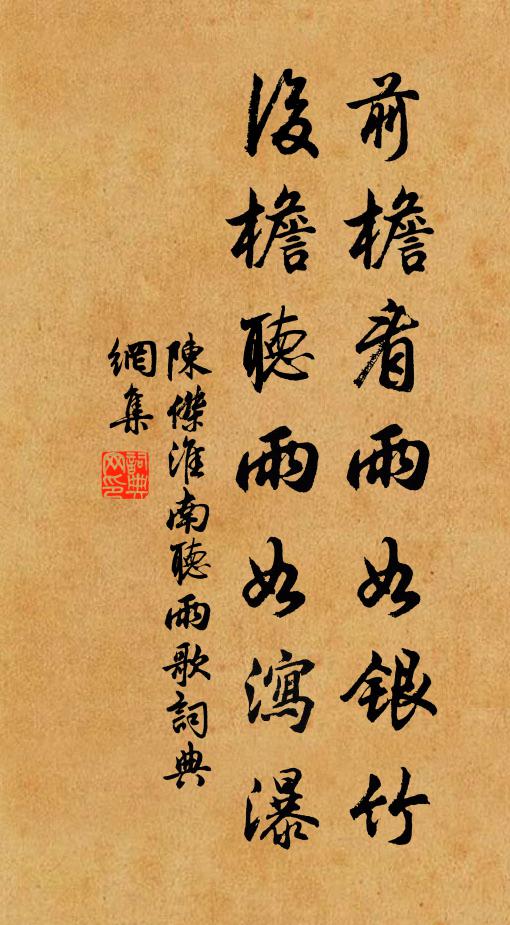 前檐看雨如銀竹
後檐聽雨如瀉瀑
陳傑淮南聽雨歌詞典
網集
詞典
网印